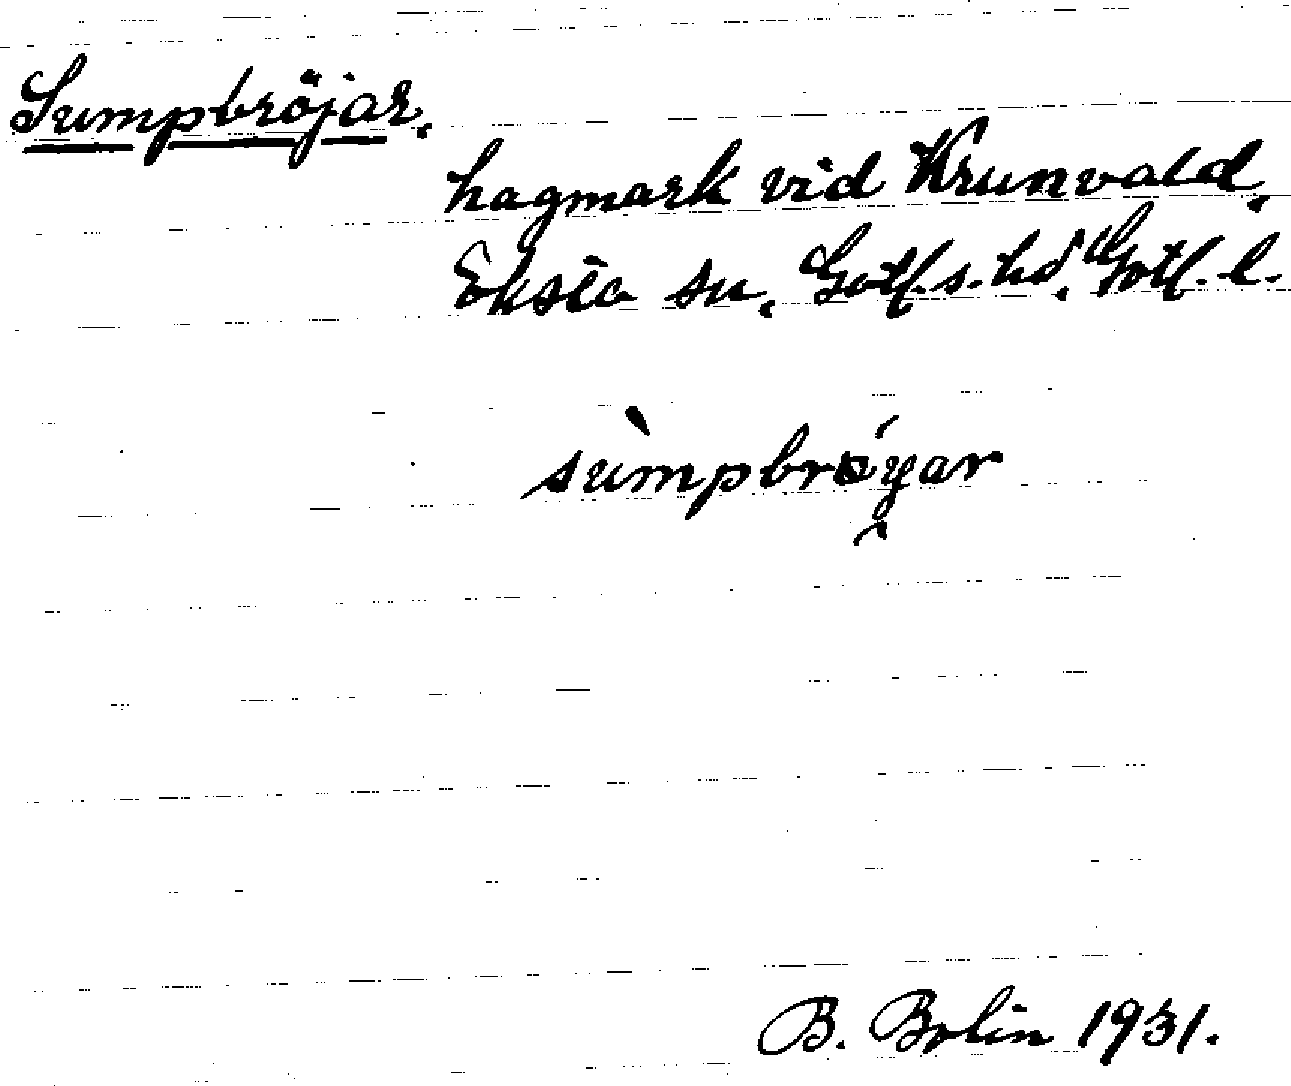 Sumpbröjar.
hagmark vid Krunvald,
Eksta sn, Gotl. s. hd, Gotl. l.
sùmpbrǿyar
B. Bolin 1931.